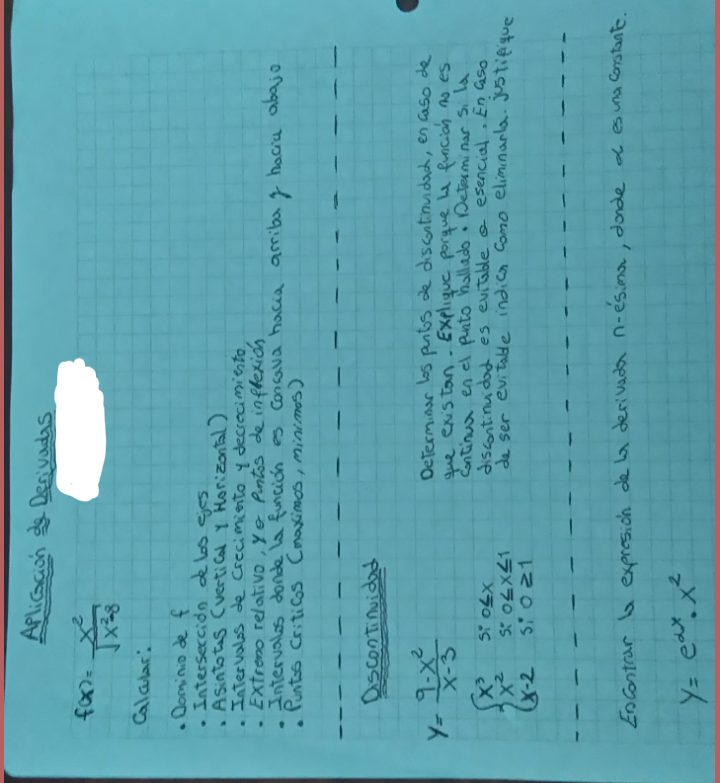 Aplicación de Derivadas
f(x) = x² / √x²-8
Calcular:
• Dominio de f
• Intersercción de los ejes
• Asintotas (vertical y Horizontal)
• Intervalos de Crecimiento y decrecimiento
• Extremo relativo, y o puntos de inflexión
• Intervalos donde la función es concava hacia arriba y hacia abajo
• Puntos Criticos (maximos, minimos)
Discontinuidad
y = 9-x² / x-3
{ x³ si 0≤x
x² si 0≤x≤1
x-2 si 0≥1
Determinar los puntos de discontinuidad, en caso de
que existan. Explique porque la función no es
continua en el punto hallado. Determinar si la
discontinuidad es evitable o esencial. En caso
de ser evitable indicar como eliminarla. justifique
Encontrar la expresión de la derivada n-ésima, donde α es una constante.
y = e^αx · x²